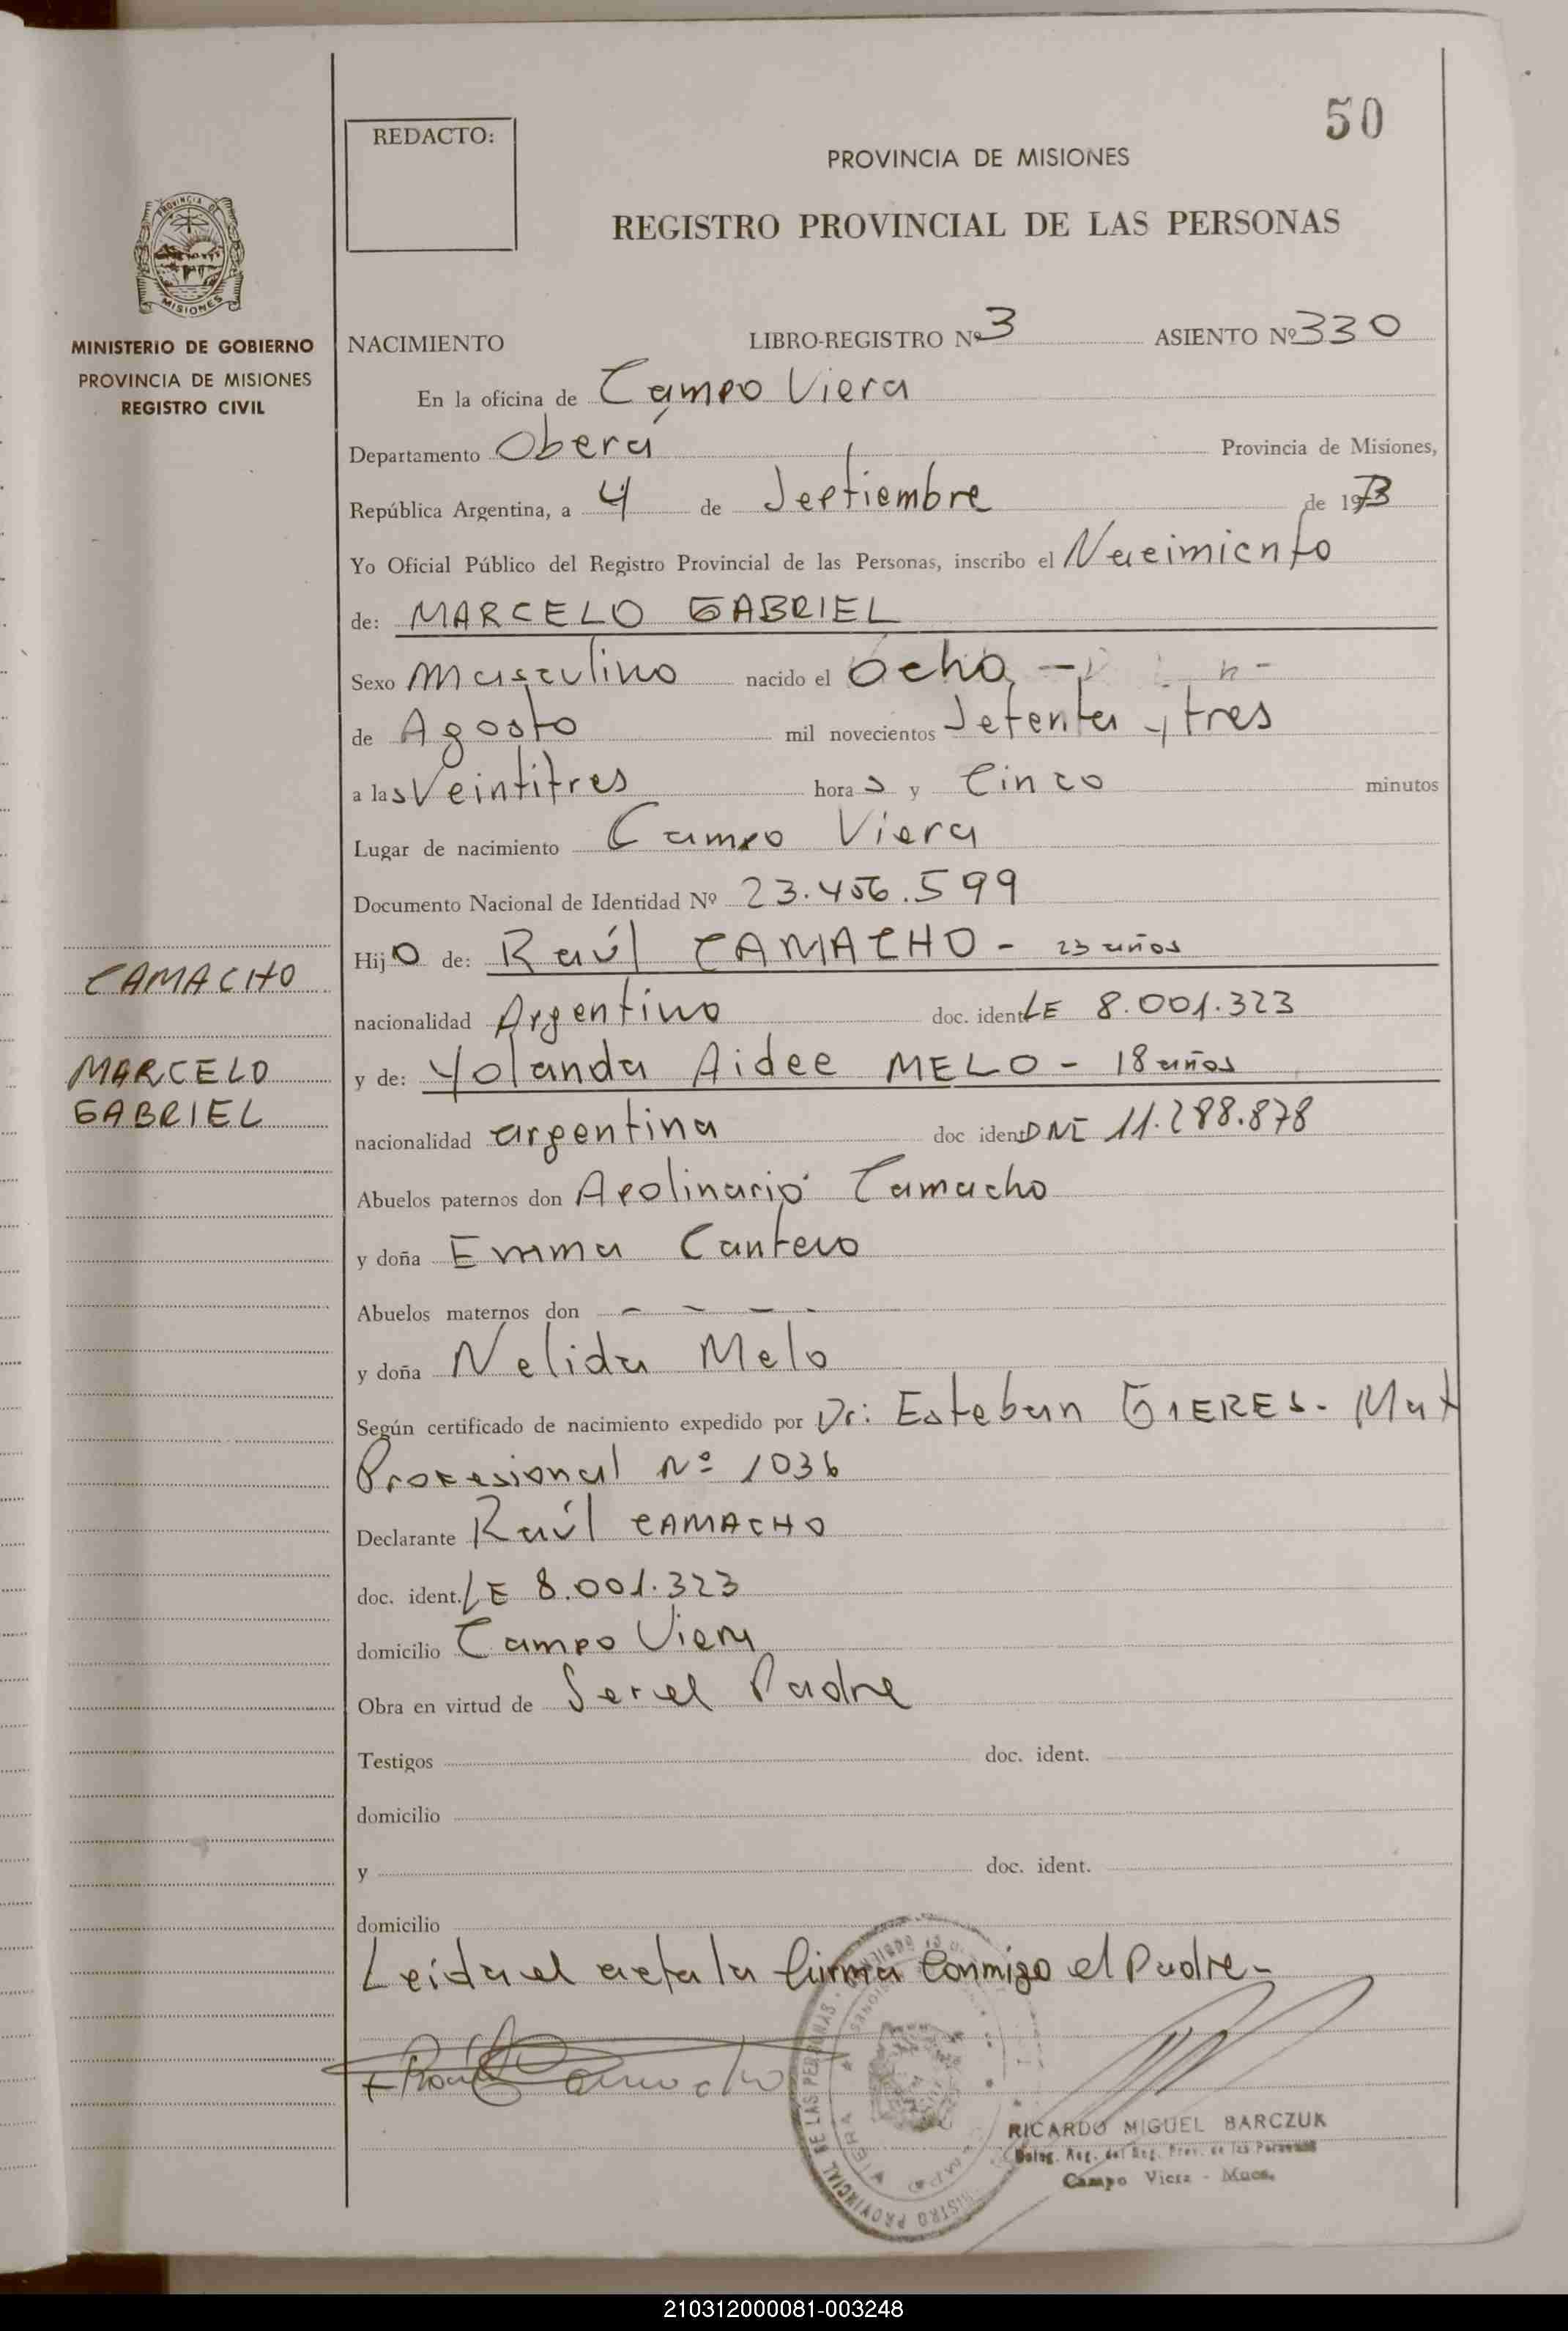 50
REDACTO:
PROVINCIA DE MISIONES
REGISTRO PROVINCIAL DE LAS PERSONAS
PROVINCIA DE
MISIONES
MINISTERIO DE GOBIERNO
PROVINCIA DE MISIONES
REGISTRO CIVIL
NACIMIENTO LIBRO-REGISTRO Nº 3 ASIENTO Nº 330
En la oficina de Campo Viera
Departamento Oberá Provincia de Misiones,
República Argentina, a 4 de Septiembre de 1973
Yo Oficial Público del Registro Provincial de las Personas, inscribo el Nacimiento
de: MARCELO GABRIEL
Sexo Masculino nacido el Ocho -
de Agosto mil novecientos Setenta y tres
a las Veintitres hora s y Cinco minutos
Lugar de nacimiento Campo Viera
Documento Nacional de Identidad Nº 23.456.599
Hijo de: Raúl CAMACHO - 23 años
CAMACHO
nacionalidad Argentino doc. ident LE 8.001.323
y de: Yolanda Aidee MELO - 18 años
MARCELO
GABRIEL
nacionalidad argentina doc ident DNI 11.288.878
Abuelos paternos don Apolinario Camacho
y doña Emma Cantero
Abuelos maternos don - - - -
y doña Nelida Melo
Según certificado de nacimiento expedido por Dr: Esteban GIERES. Mat
Profesional Nº 1036
Declarante Raúl CAMACHO
doc. ident. LE 8.001.323
domicilio Campo Viera
Obra en virtud de Ser el Padre
Testigos doc. ident.
domicilio
y doc. ident.
domicilio
Leida el acta la firma Conmigo el Padre-
Raúl Camacho
REGISTRO PROVINCIAL DE LAS PERSONAS
CAMPO VIERA
RICARDO MIGUEL BARCZUK
Deleg. Reg. del Reg. Prov. de las Personas
Campo Viera - Mnes.
210312000081-003248